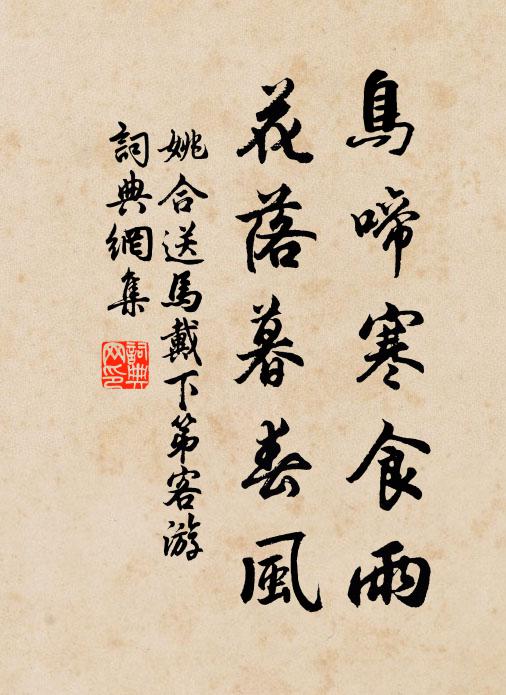 鳥啼寒食雨
花落暮春風
姚合送馬戴下第客游
詞典網集
詞典
网印